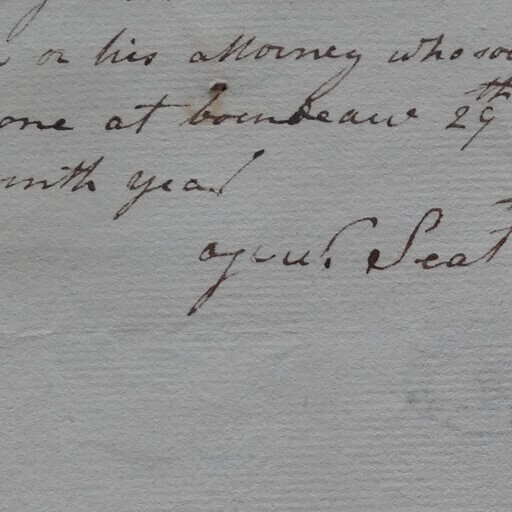 or his attorney who soe
one at bourdeaux 29th
ninth year
Seat